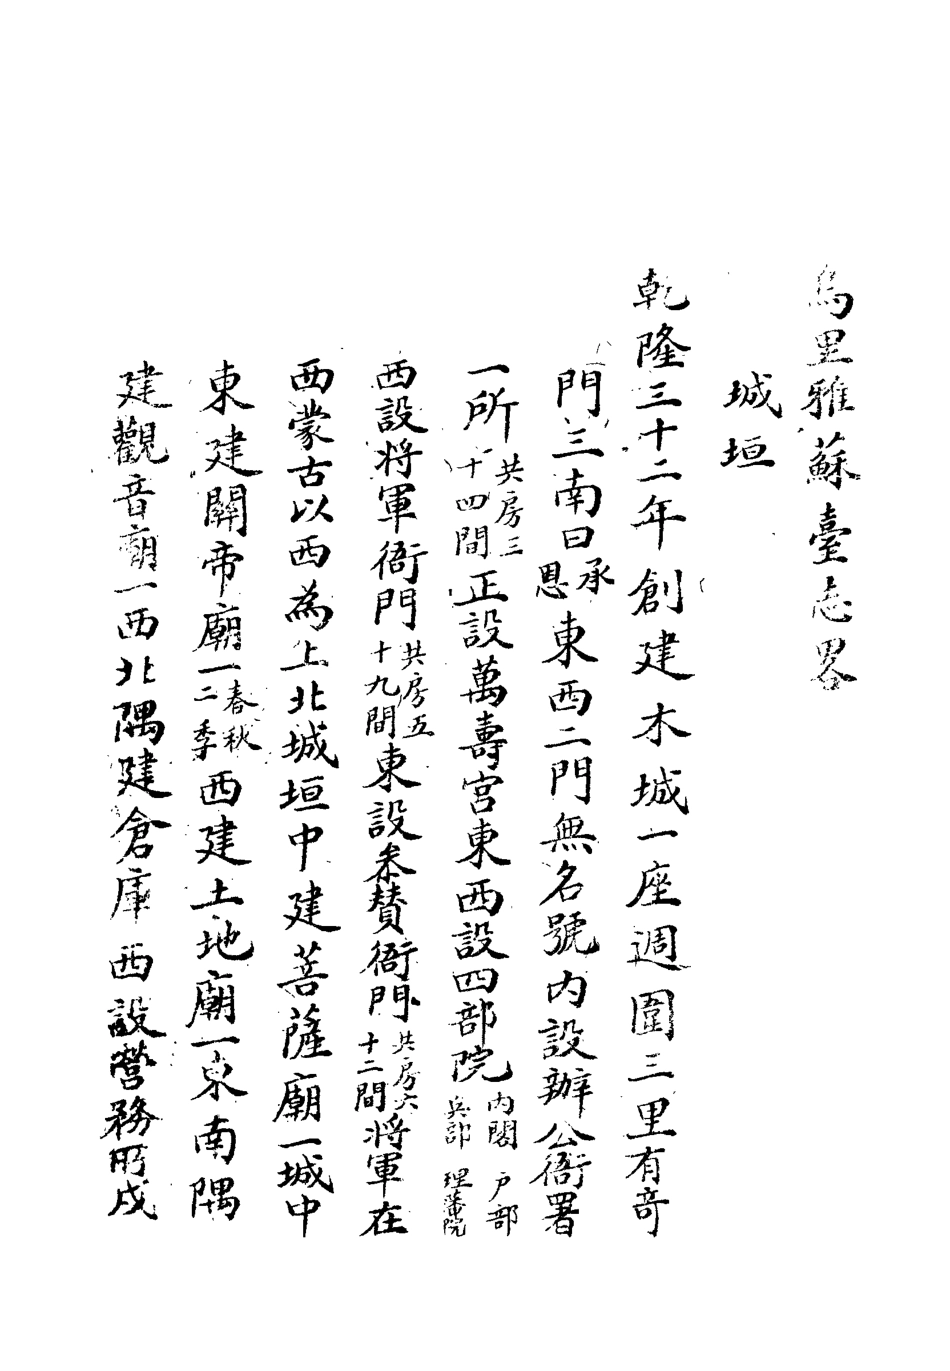 烏里雅蘇臺志畧
城垣
乾隆三十二年創建木城一座週圍三里有奇
門三南曰承恩東西二門無名號内設辦公衙署
一所共房三十四間正設萬壽宮東西設四部院内閣戶部兵部理藩院
西設将軍衙門共房五十九間東設叅賛衙門共房六十二間将軍在
西蒙古以西為上北城垣中建菩薩廟一城中
東建關帝廟一春秋二季西建土地廟一東南隅
建觀音廟一西北隅建倉庫西設營務所戍